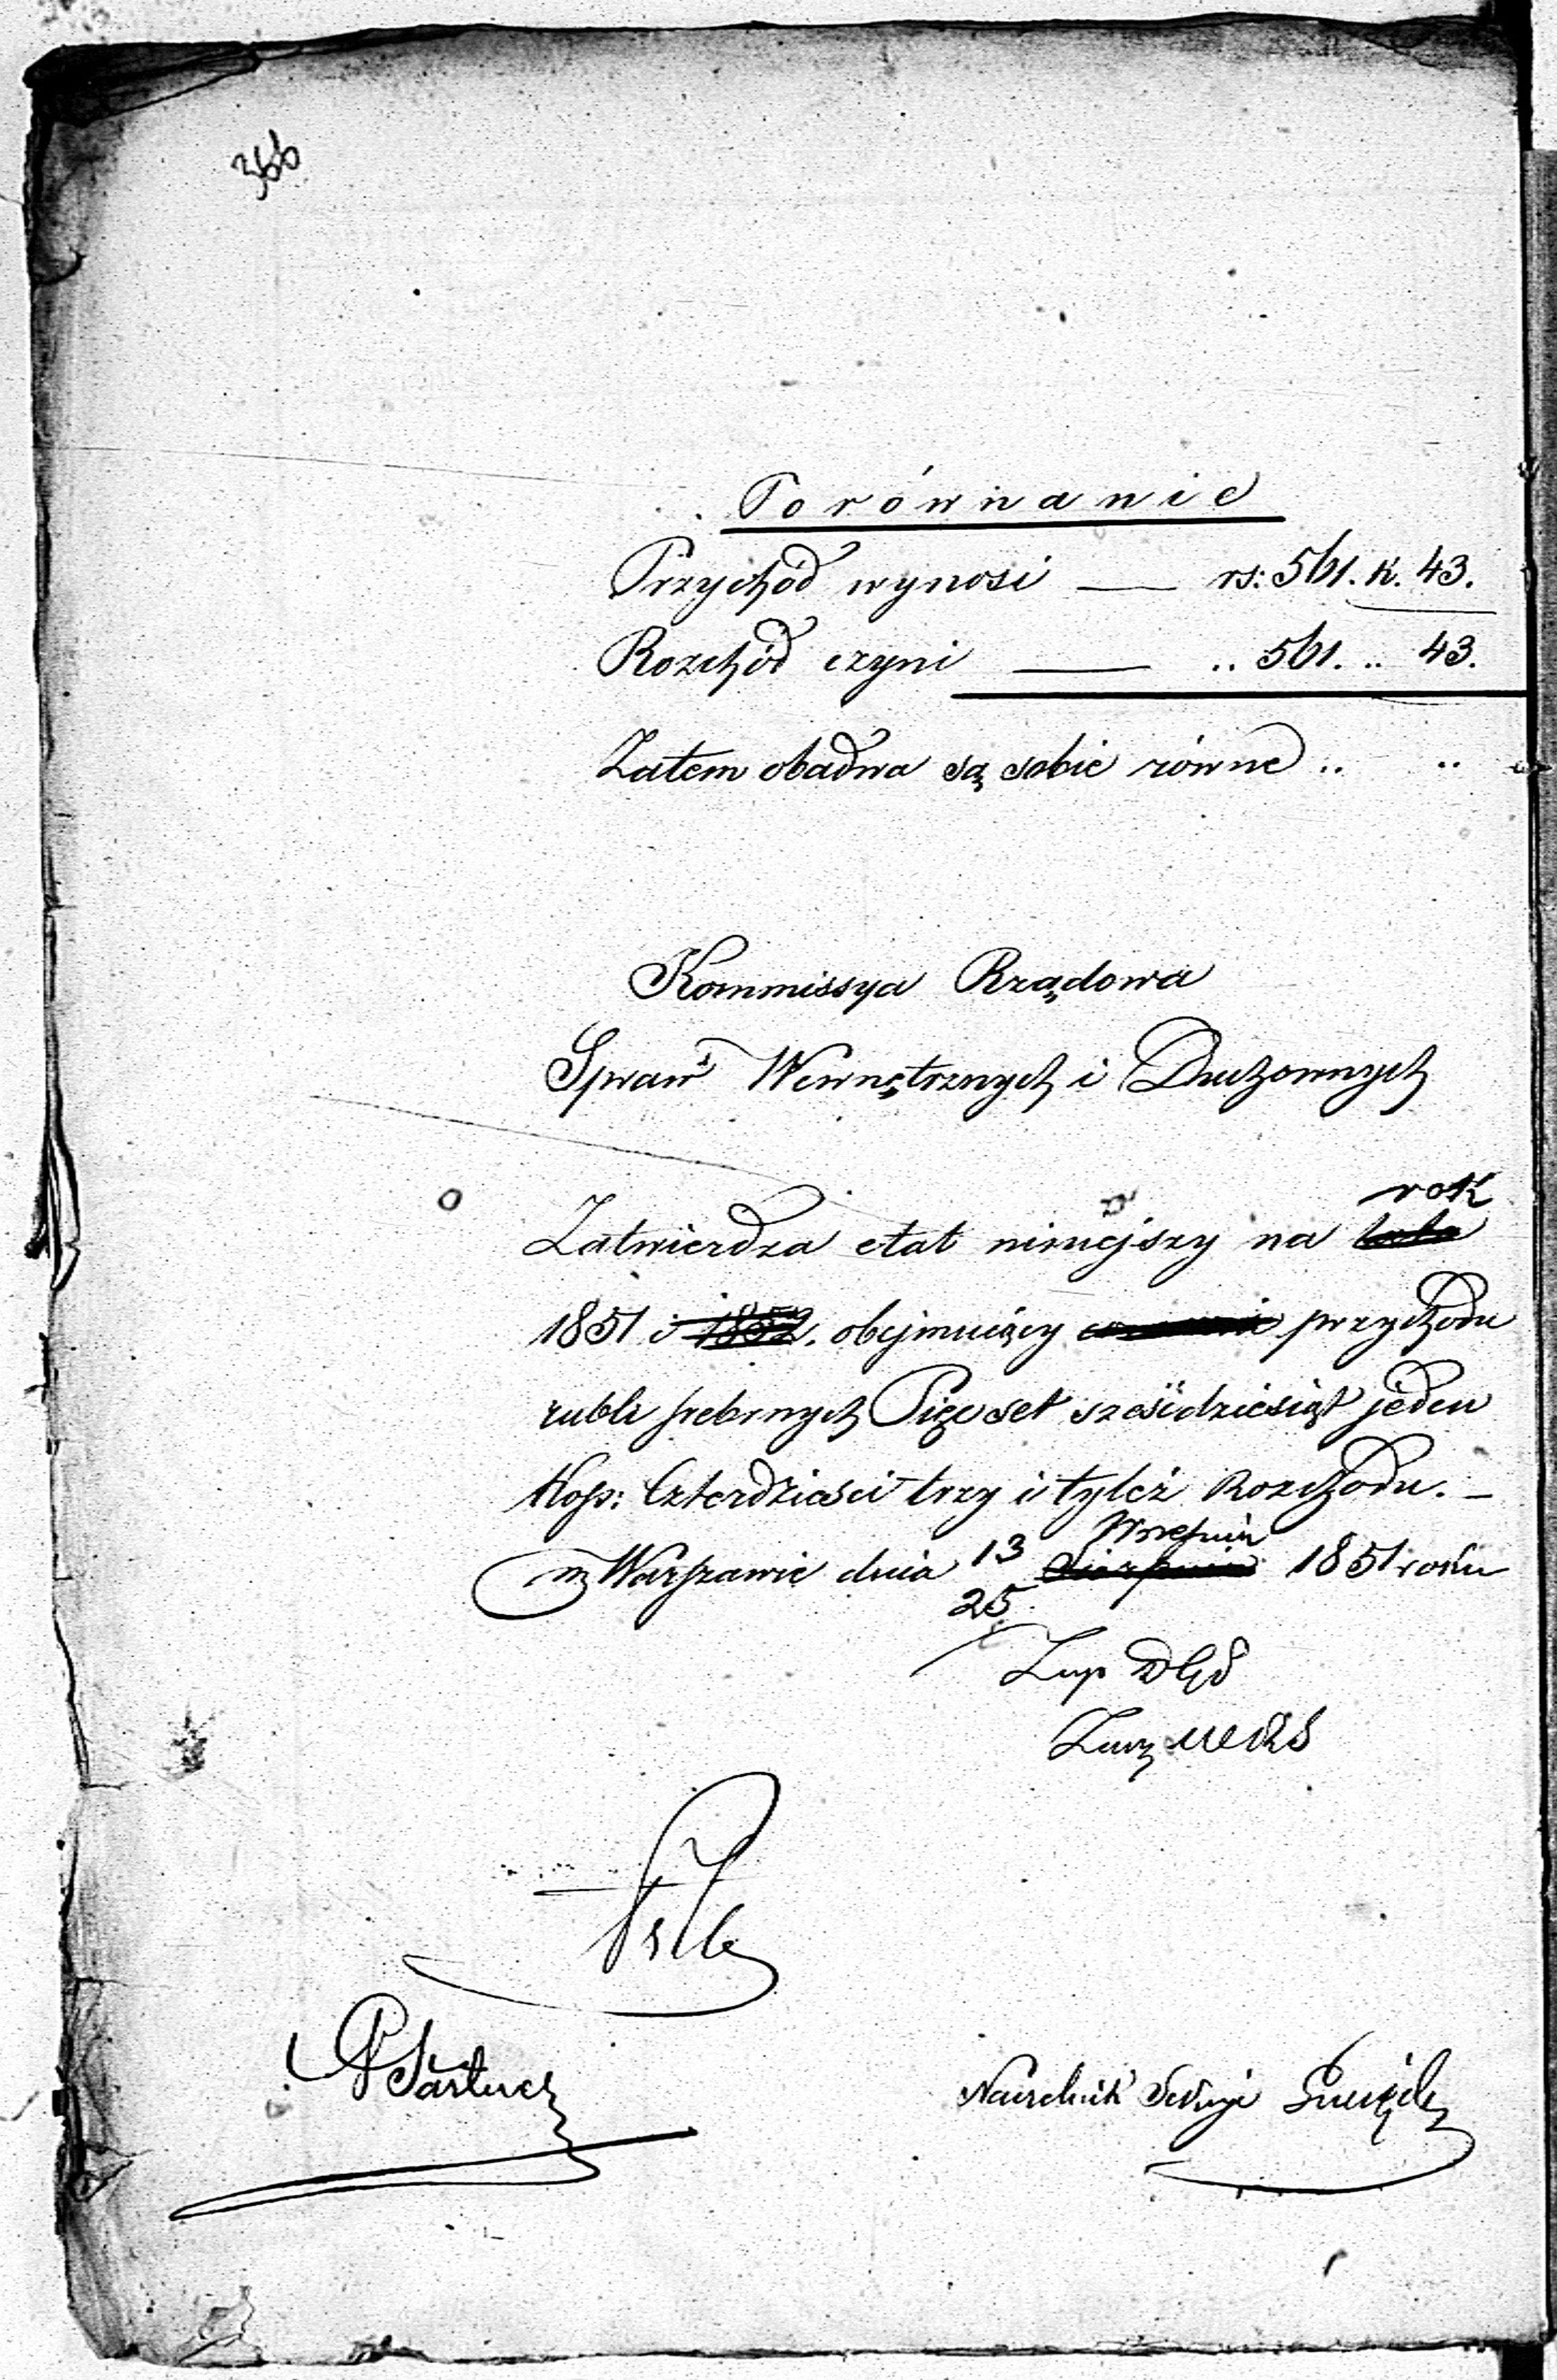 366
Porównanie
Przychód wynosi — rs: 561. k. 43.
Rozchód czyni — .. 561. .. 43.
Zatem obadwa są sobie równe .. ..
Kommissya Rządowa
Spraw Wewnętrznych i Duchownych
rok
Zatwierdza etat niniejszy na lata
1851 i 1852. obejmuiący przychodu
rubli srebrnych Pięcset sześćdziesiąt jeden
Kop: Czterdzieści trzy i tyleż Rozchodu. —
w Warszawie dnia 13 Września
25 Sierpnia 1851 roku
Naczelnik Sekcyi